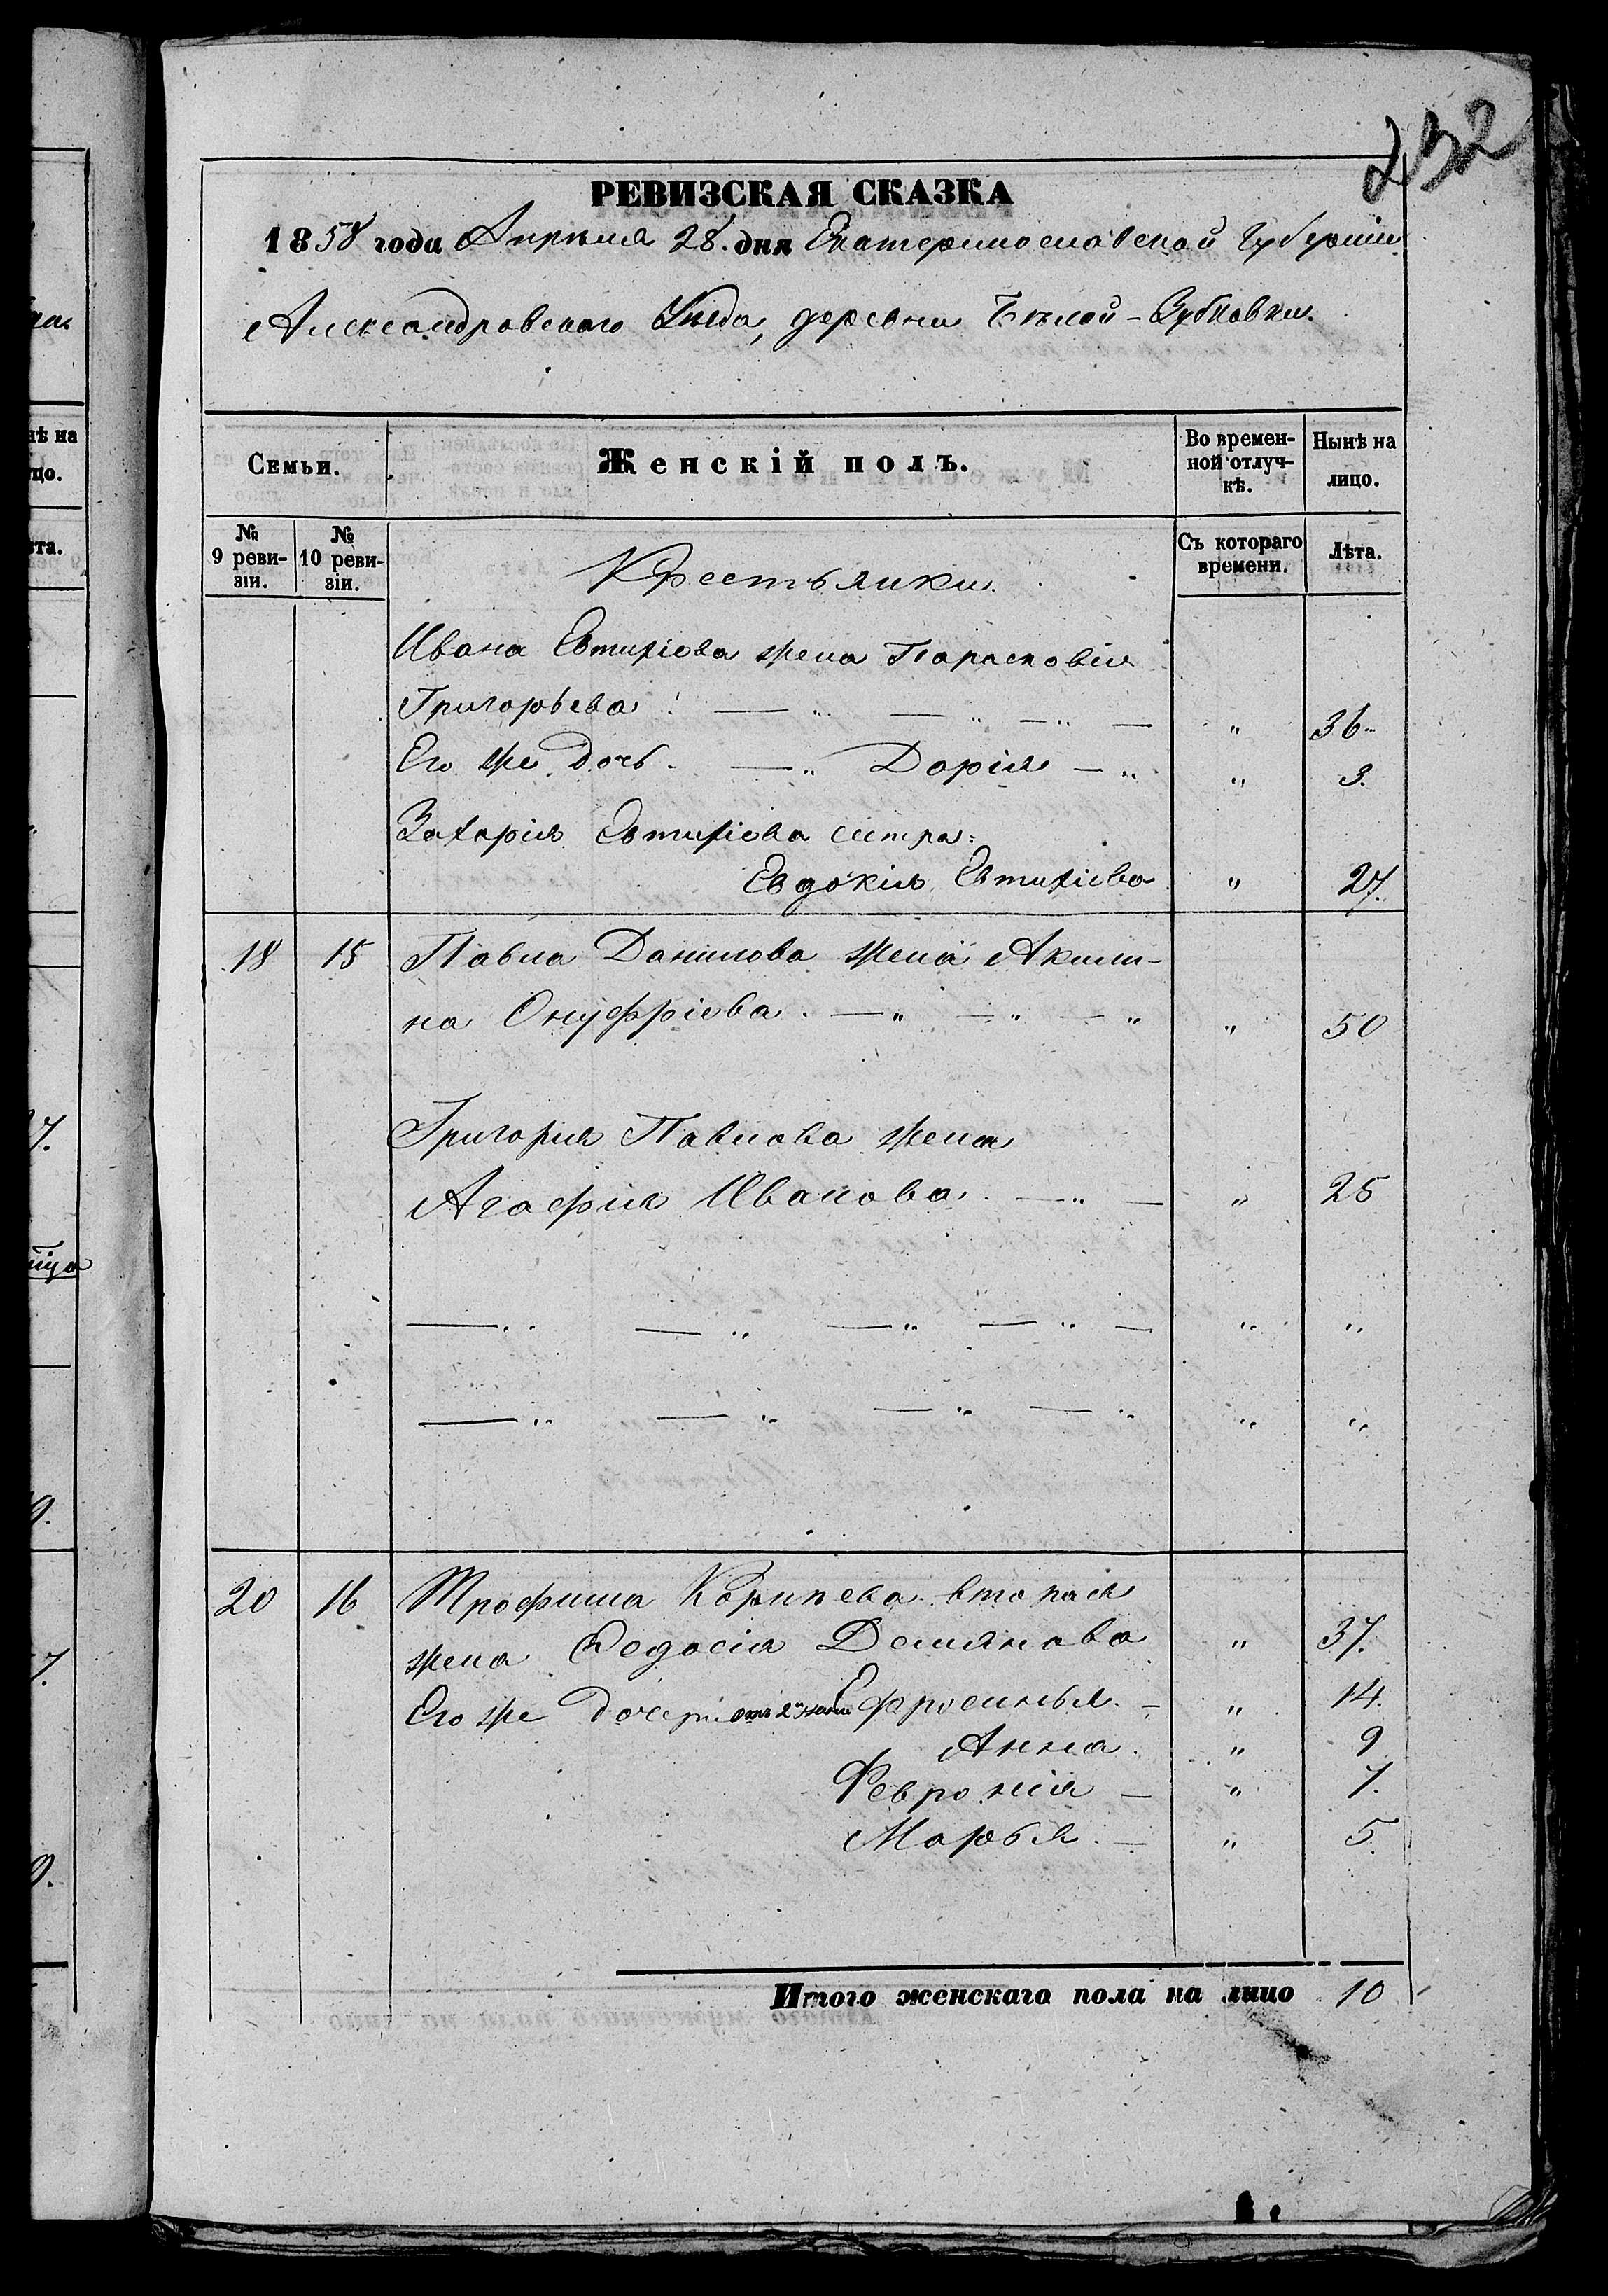 232
РЕВИЗСКАЯ СКАЗКА
1858 года Апрѣля 28 дня Екатеринославской Губерніи
Александровскаго Уѣзда, деревни Бѣлой-
Семьи.
Женскій полъ.
Во времен-
ной отлуч-
кѣ.
Нынѣ на
лицо.
№
9 реви-
зіи.
№
10 реви-
зіи.
Крестьянки.
Съ котораго
времени.
Лѣта.
Ивана Евтихіева жена Парасковія
Григорьева — „ — „ — „ — „ 36
Его же Дочь — „ Дорія — „ „ 3.
Захарія Евтихіева сестра:
Евдокія Евтихіева „ 27.
18 15 Павла Данилова жена Акили-
на Онуфріева. — „ — „ — „ „ 50
Григорія Павлова жена
Агафія Иванова. — „ — „ 25
— „ — „ — „ — „ — „ „
— „ — „ — „ — „ „ „
20 16 Трофима Корнѣева вторая
жена Федосія Демянова „ 37.
Его же Дочери отъ жены Ефросинья. — „ 14.
Анна. „ 9
Февронія — „ 7.
Марья. — „ 5.
Итого женскаго пола на лицо 10